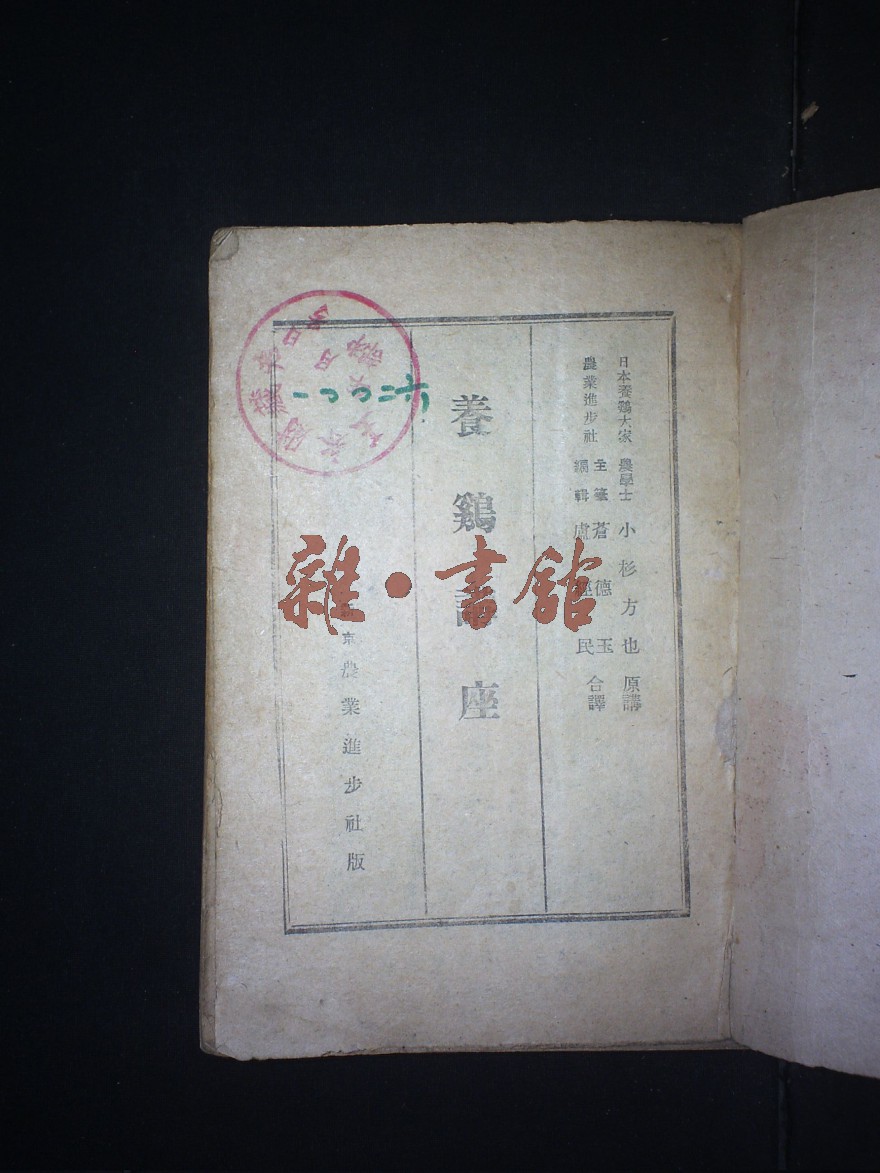 日本養鷄大家 農學士 小杉方也 原講
農業進步社 主筆 蒼德玉 編輯 盧經民 合譯
養鷄講座
新京農業進步社版
雜·書館